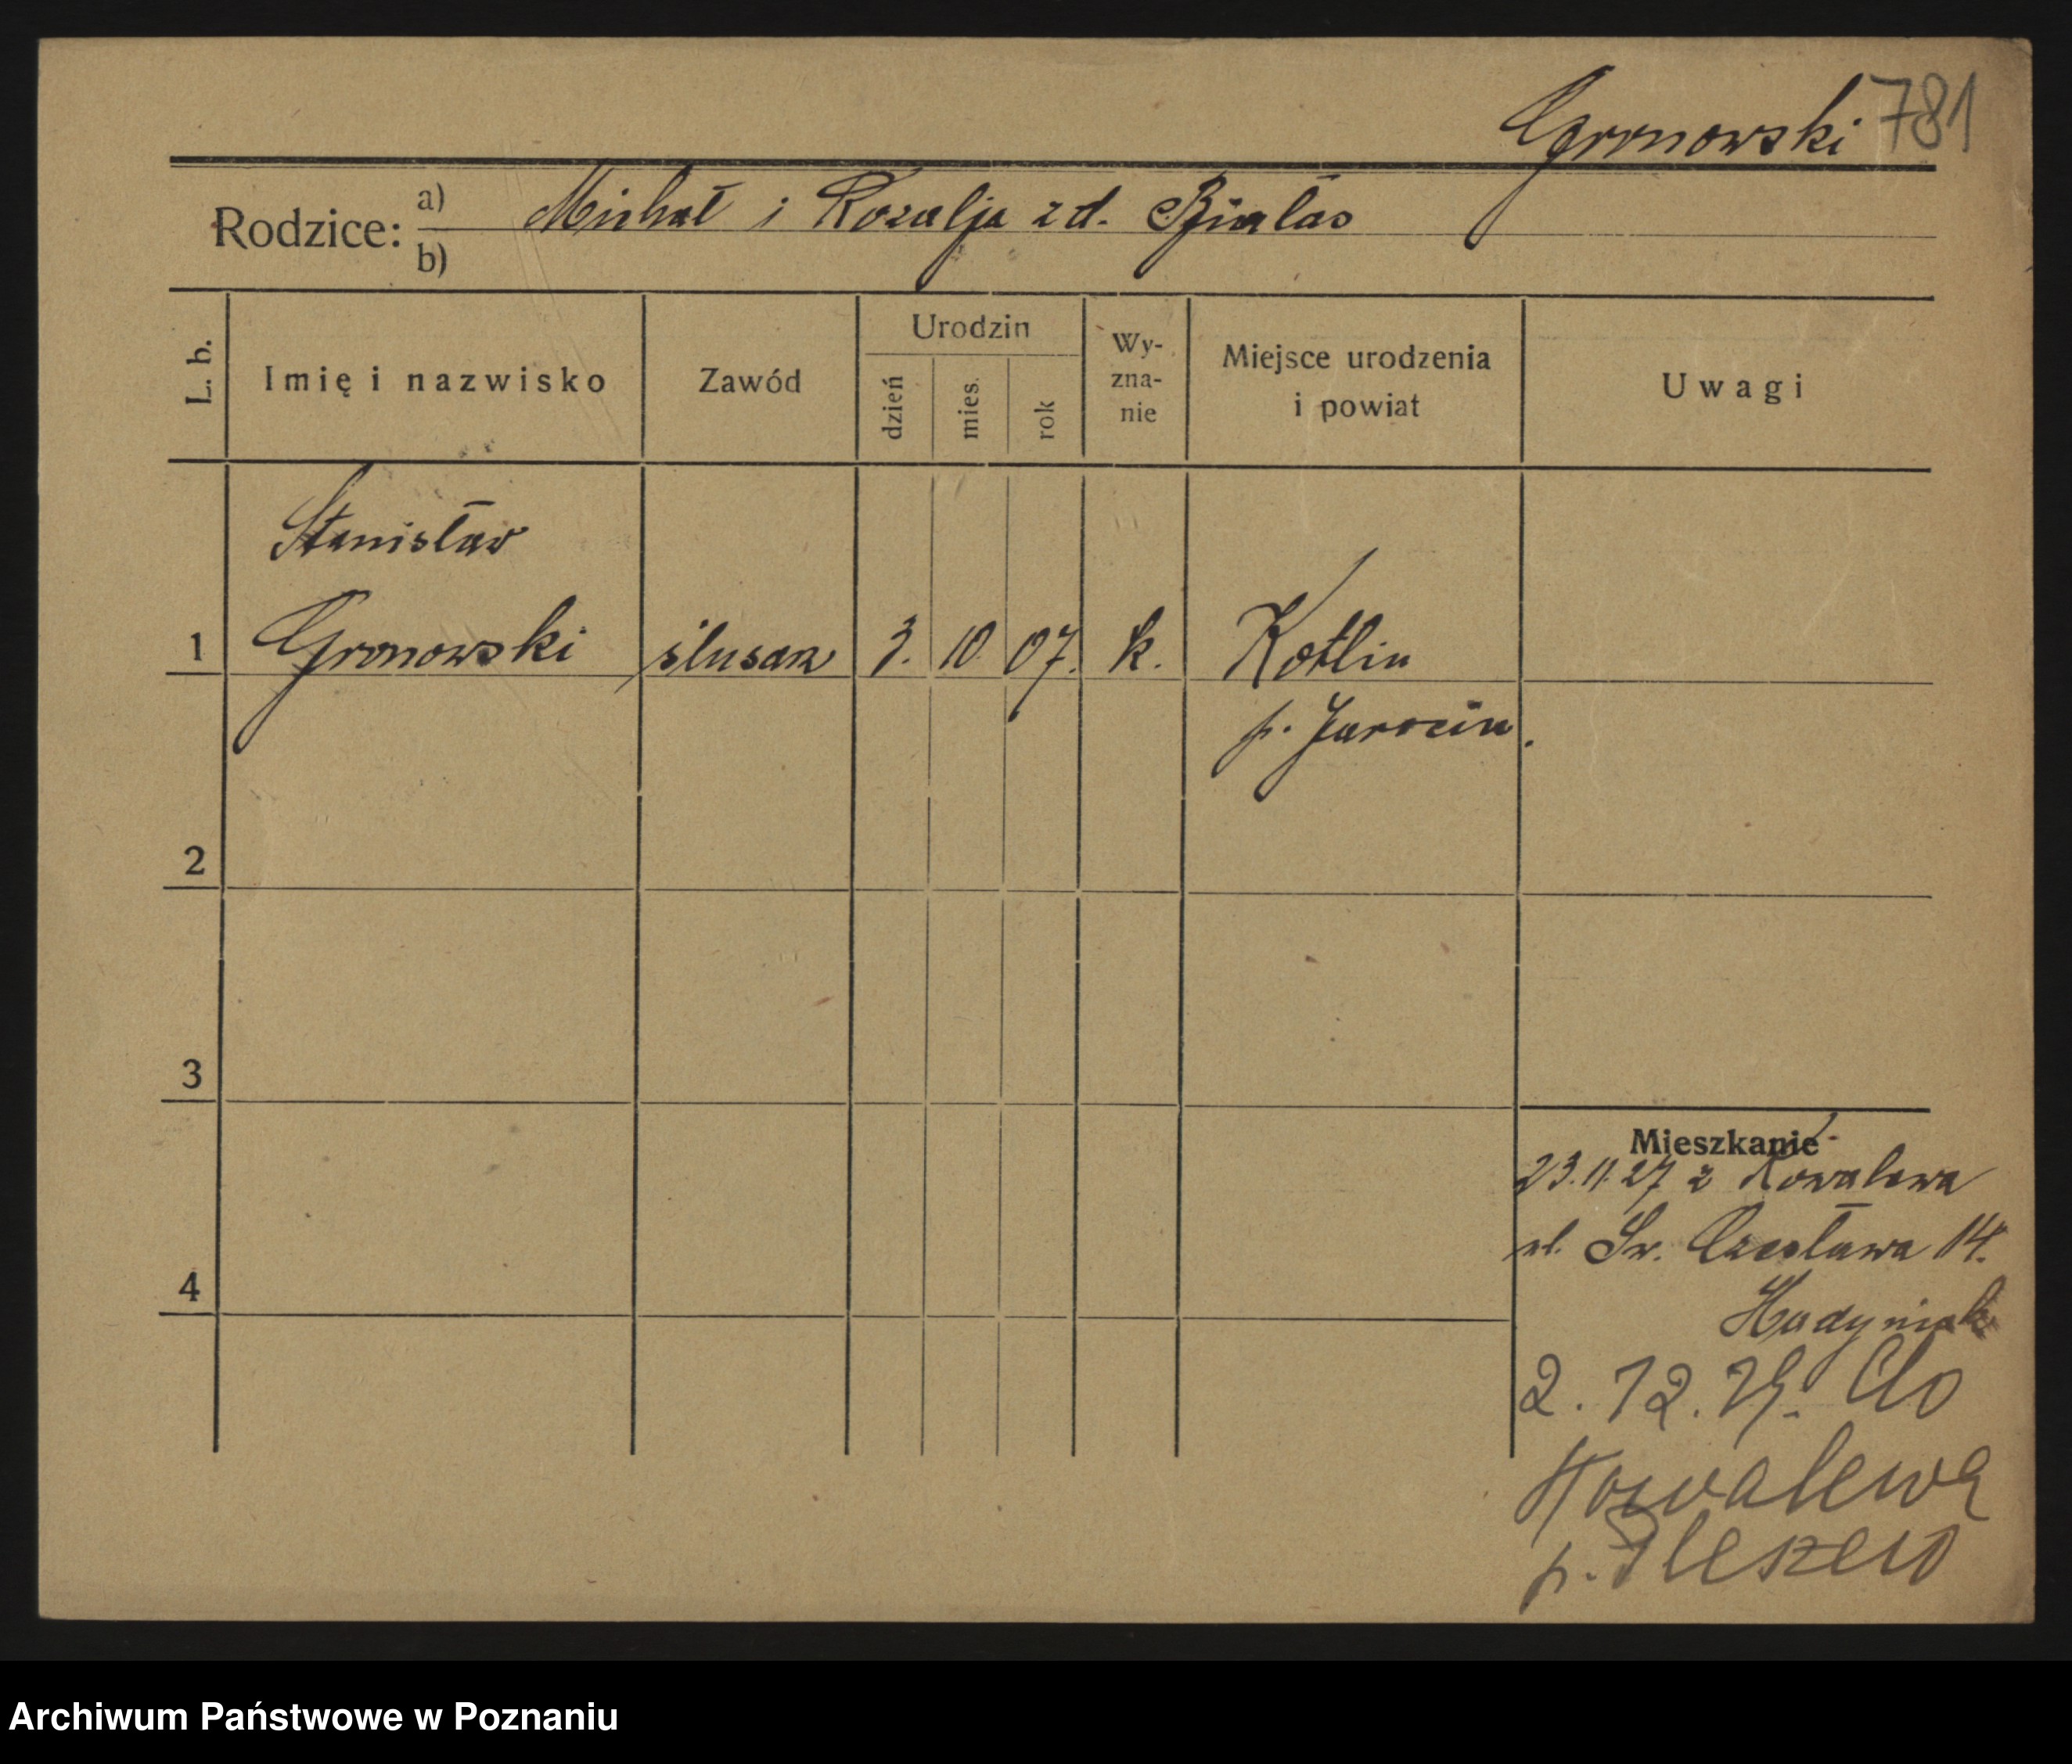 Gronowski 781
Rodzice: a) Michał i Rozalja zd. Białas
b)
L. b. Imię i nazwisko Zawód Urodzin dzień mies. rok Wy-zna-nie Miejsce urodzenia i powiat Uwagi
Stanisław
1 Gronowski ślusarz 3. 10. 07. k. Kotlin
p. Jarocin.
2
3
Mieszkanie
23.11.27 z Kowalewa
ul. Św. Czesława 14.
4
Hadyniak
2.12.29. do
Kowalewa
p. Pleszew
Archiwum Państwowe w Poznaniu